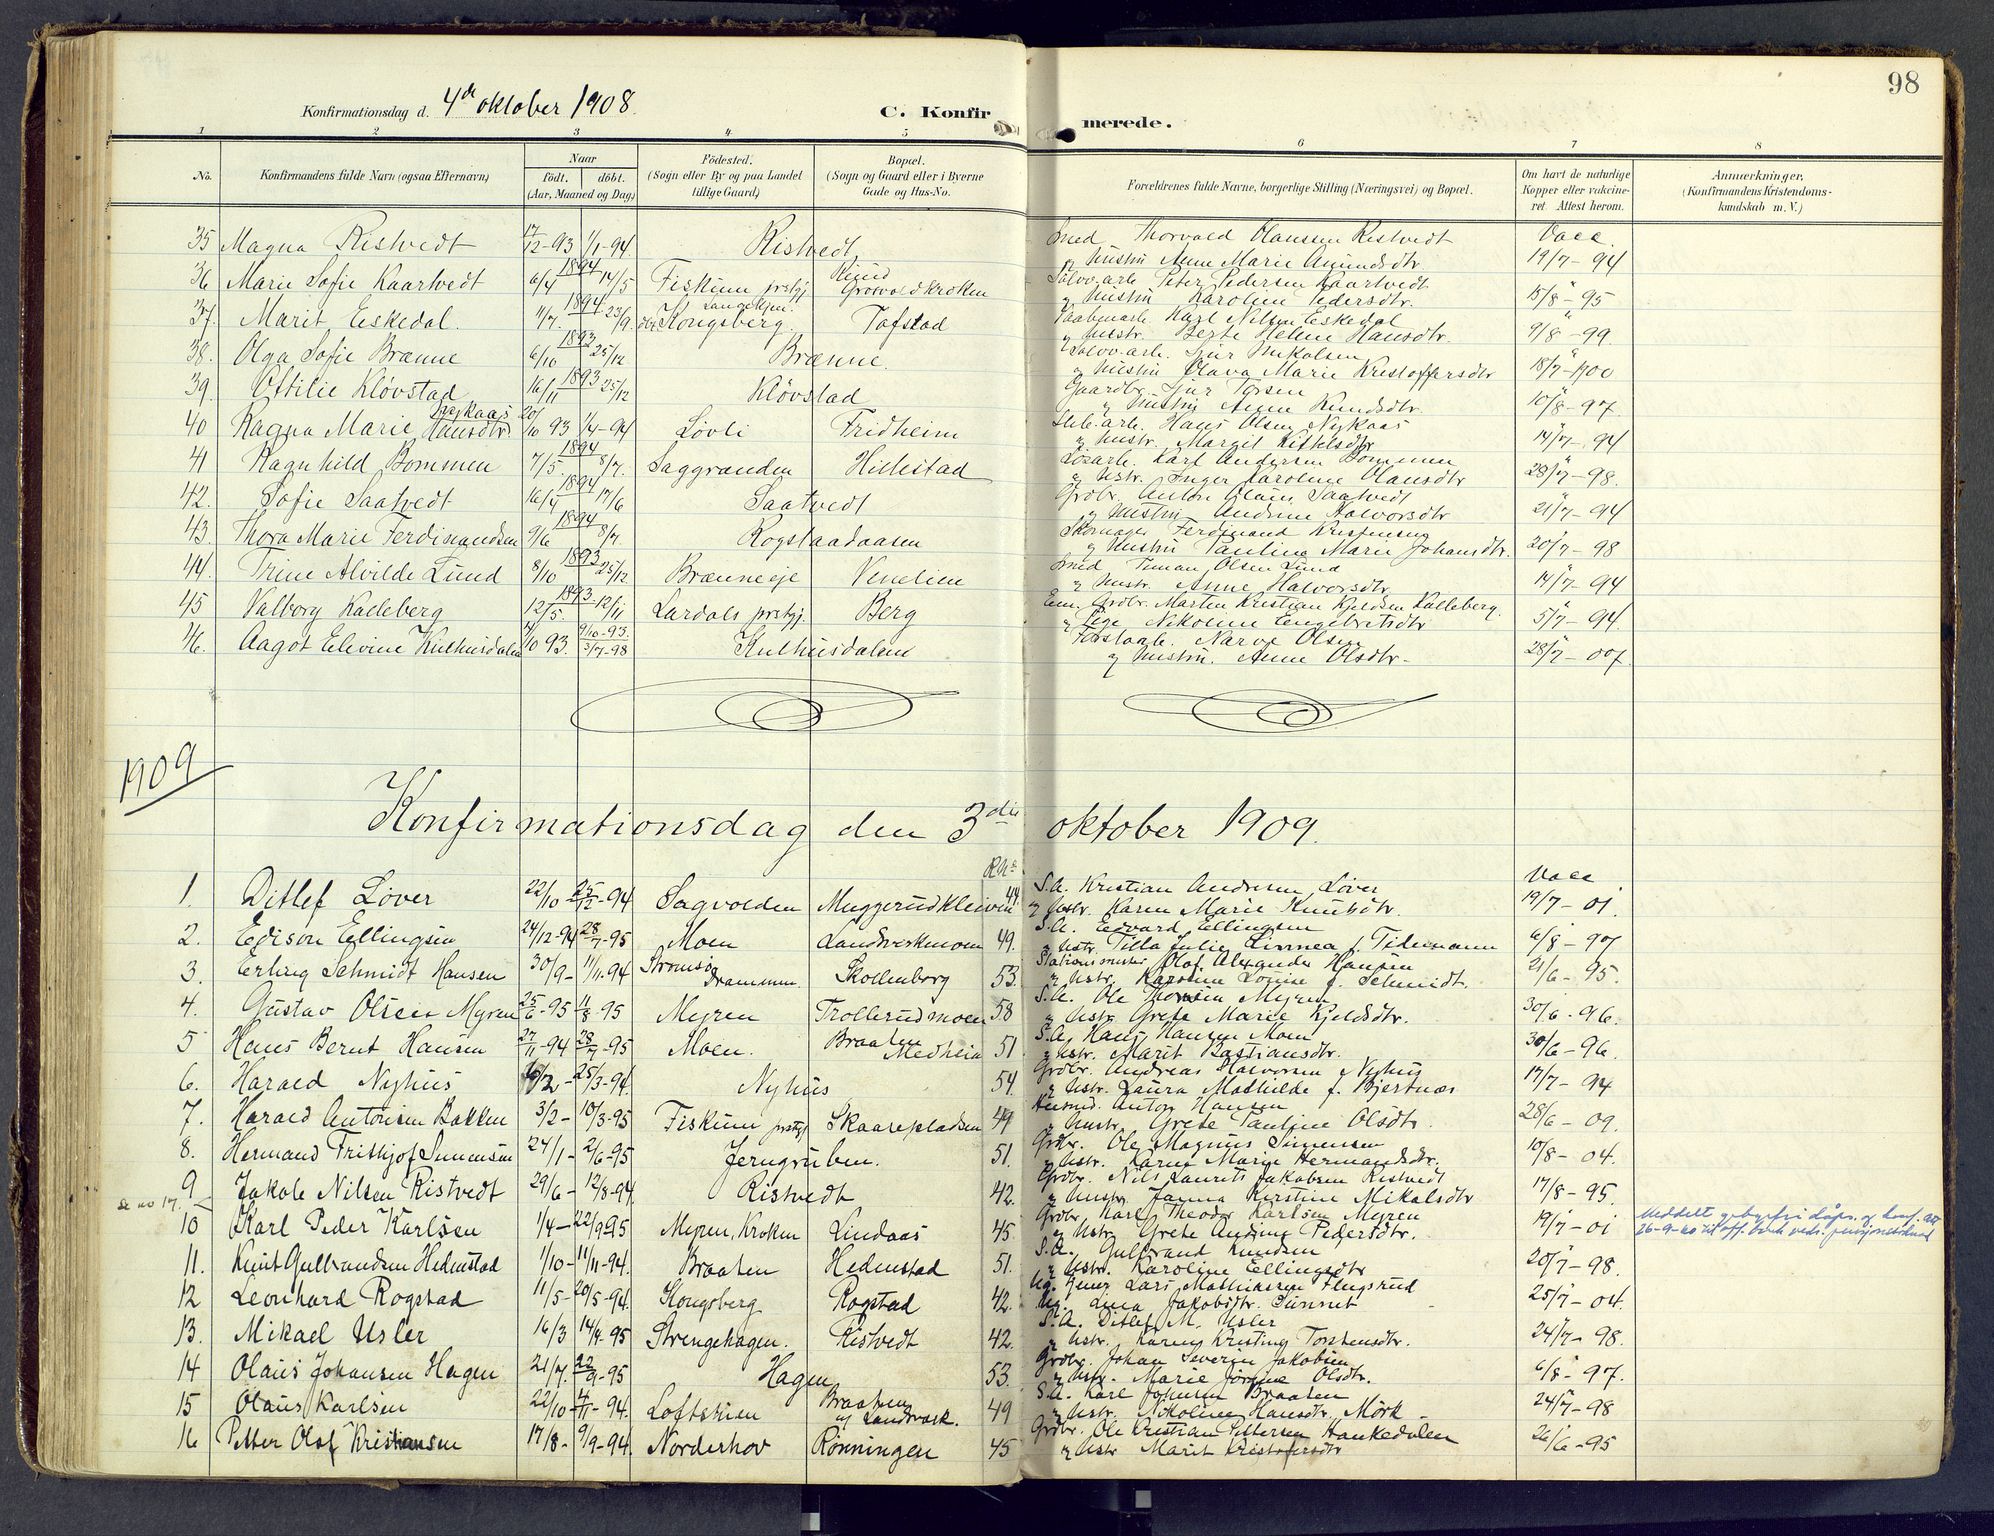 98
Konfirmationsdag d. 4de oktober 1908.
C. Konfirmerede.
1 2 3 4 5 6 7 8
No.
Konfirmandens fulde Navn (ogsaa Efternavn)
Naar
født. døbt.
(Aar, Maaned og Dag)
Födested.
(Sogn eller By og paa Landet
tillige Gaard)
Bopæl.
(Sogn og Gaard eller i Byerne
Gade og Hus-No.
Forældrenes fulde Navne, borgerlige Stilling (Næringsvei) og Bopæl.
Om havt de naturlige
Kopper eller vakcine-
ret. Attest herom.
Anmærkninger,
(Konfirmandens Kristendoms-
kundskab m. V.)
35 Magna Ristvedt 17/12-93 1/1-94 Ristvedt Smed Thorvald Olaussen Ristvedt Vacc.
og Hustru Anne Marie Amundsdtr 19/7-94
36 Marie Sofie Kaartvedt 6/4 1894 14/5 Fiskum prstgj Knud Grosvoldkroken Sølvv.arb. Peter Pedersen Kaartvedt
og Hustru Karoline Pedersdtr. 15/8-95
37. Marit Eskedal. 11/7. 1894 23/9. Kongsberg. Tofstad Karl Nilsen Eskedal
og Hustr. Berte Helene Hansdtr. 9/8-99
38. Olga Sofie Brænne 6/10 1893 25/12 Brænne. Sølvv.arb. Sjur Mikalsen
og Hustru Olava Marie Kristoffersdtr 18/7-1900
39. Ottilie Kløvstad 16/11 1893 25/12 Kløvstad Gaardbr. Sjur Torsen
og Hustru Anne Knudsdtr. 10/8-97
40 Ragna Marie Hansdtr. Nykaas 20/10 93 1/4-94 Løvli Fridheim Hans Olsen Nykaas
og Hustr. Margit Kittelsdtr 14/7-94
41 Ragnhild Bommen 7/5. 1894 8/7. Saggrenden Hillestad Løsarb. Karl Andersen Bommen
og Hstr. Inger Karoline Olausdtr 28/7-98.
42. Sofie Saatvedt 16/4 1894 17/6 Saatvedt Grdbr. Anton Olsen Saatvedt
og Hustru Andrine Halvorsdtr 21/7-94
43. Thora Marie Ferdinandsen 9/6 1894 8/7. Rogstadaasen Skomager Ferdinand Kristensen
og Hustru Pauline Marie Johansdtr. 20/7-98
44. Trine Alvilde Lund 8/10 1893 25/12 Brænneeje Venelien Smed Timan Olsen Lund
og Hustr. Anne Halvorsdtr 14/7-94
45 Valborg Kalleberg 12/5. 1893 12/11 Lardals prstgj. Berg Em. Grdbr. Marten Kristian Kjeldsen Kalleberg.
og Pige Nikoline Engebretsdtr 5/7-94.
46. Aagot Elevine Kulhusdalen 17/10 93. 9/10-93. 3/7-98 Kulhusdalen Forstarb. Narve Olsen
og Hustru. Anne Olsdtr. 28/7-007.
1909
Konfirmationsdag den 3die oktober 1909.
1. Ditlef Løver 22/10 25/12-94 Sagvolden Muggerudkleiven 44. S.A. Kristian Andersen Løver Vacc
og Hstr. Karen Marie Knutsdtr. 19/7-01.
2. Edison Ellingsen 24/12-94 28/7-95 Moen Landverkmoen 49. S.A. Edvard Ellingsen
og Hstr. Tilla Julie Linnea f. Tidemann 6/8-97
3. Erling Schmidt Hansen 30/9- 11/11-94 Strømsø Drammen. Skollenborg 53. Stationsmester Olaf Alexander Hansen
og Hstr. Karoline Louise f. Schmidt. 21/6-95.
4. Gustav Olsen Myren 25/6-95 11/8-95 Myren Trollerudmoen 58 S.A. Ole Thorsen Myren
og Hstr. Grete Marie Kjeldsdtr. 30/6-96.
5 Hans Bernt Hansen 27/11-94 28/7-95 Moen. Braaten Medheia 51. S.A. Hans Hansen Moen
og Hstr. Marit Bastiansdtr. 30/6-96.
6. Harald Nyhus 25/3-94. Nyhus 54. Grdbr. Andreas Halvorsen Nyhus
og Hstr. Laura Mathilde f. Bjertnæs 17/7-94
7. Harald Antonsen Bakken 3/2- 10/3-95 Fiskum prstgj Skaarepladsen 49 Husmd. Anton Hansen
og Hustr. Grete Pauline Olsdtr. 28/6-09.
8. Hermand Frithjof Simensen 24/1- 2/6-95 Jerngruben. 51. Grdbr. Ole Magnus Simensen
og Hstr. Karen Marie Hermandsdtr. 10/8-04.
9 Jakob Nilsen Ristvedt 29/6- 12/8-94. Ristvedt 42. Grdbr. Nils Laurits Jakobsen Ristvedt
og Hustr. Janna Kerstine Mikalsdtr 17/8-95.
Se no 17.
10 Karl Peder Karlsen 1/4- 22/9-95 Myren, Kroken Lindaas 45. Grdbr. Karl Theodor Karlsen Myren
og Hstr. Grete Andine Pedersdtr. 19/7-01
Meddelt gebyrfri dåps. og konf. att
26-9-60 til off. bruk veds. pensjonssøknad
11. Knut Gulbrandsen Hedenstad 1/10- 11/11-94. Braaten Hedenstad 51. S.A. Gulbrand Knudsen
og Hstr. Karoline Ellingsdtr 20/7-98.
12 Leonhard Rogstad 11/5- 20/5-94. Kongsberg Rogstad 42. Ug. Lars Mathiasen Flugsrud
Ug. Lina Jakobsdtr. 25/7-04.
13. Mikael Usler 16/3 14/4-95 Strengehagen. Ristvedt 42. S.A. Ditlef M. Usler
og Hstr. Karen Kristine Torstensdtr. 24/7-98.
14 Olaus Johansen Hagen 21/7. 22/9-95 Hagen 53. Grdbr. Johan Severin Jakobsen
og Hstr. Marie Jørgine Olsdtr. 6/8-97.
15 Olaus Karlsen 22/10- 4/11-94. Loftstuen Braaten u/ Landverk. 49 S.A. Karl Johnsen Braaten
og Hstr. Nikoline Hansdtr. Mørk 24/7-98
16 Petter Olaf Kristiansen 17/8- 9/9-94. Norderhov Rønningen 45 Grdbr. Ole Kristian Pettersen Hankedalen
og Hstr Marit Kristofersdtr 26/6-95